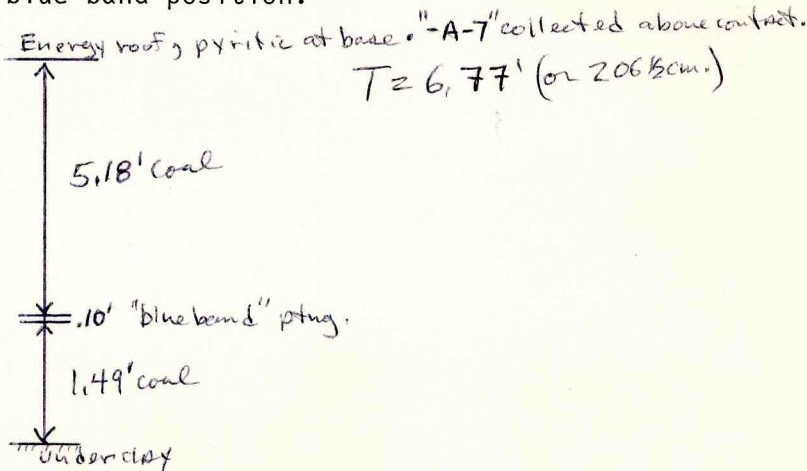 blue band position.
Energy roof, pyritic at base. "-A-7" collected above contact.
T = 6.77' (or 206 ½ cm.)
5.18' coal
.10' "blue band" ptng.
1.49' coal
underclay